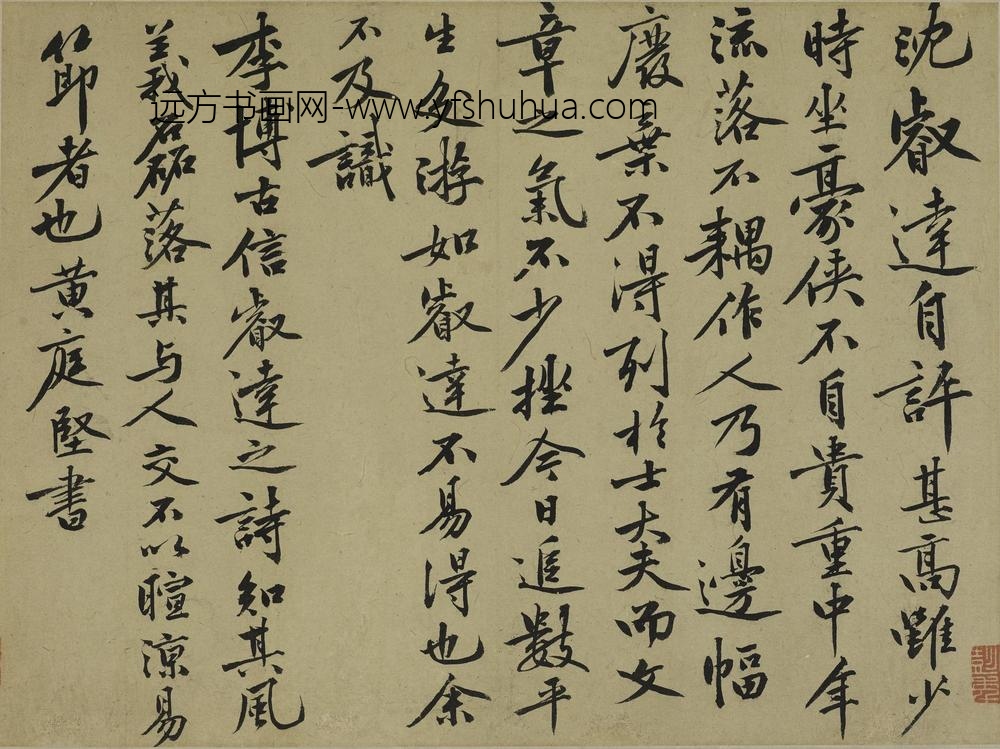 沈叡達自許甚高雖少
時坐豪俠不自貴重中年
流落不耦作人乃有邊幅
廢棄不得列於士大夫而文
章之氣不少挫今日追數平
生交游如叡達不易得也余
不及識
李博古信叡達之詩知其風
義磊落其与人交不以暄涼易
節者也黄庭堅書
远方书画网-www.yfshuhua.com